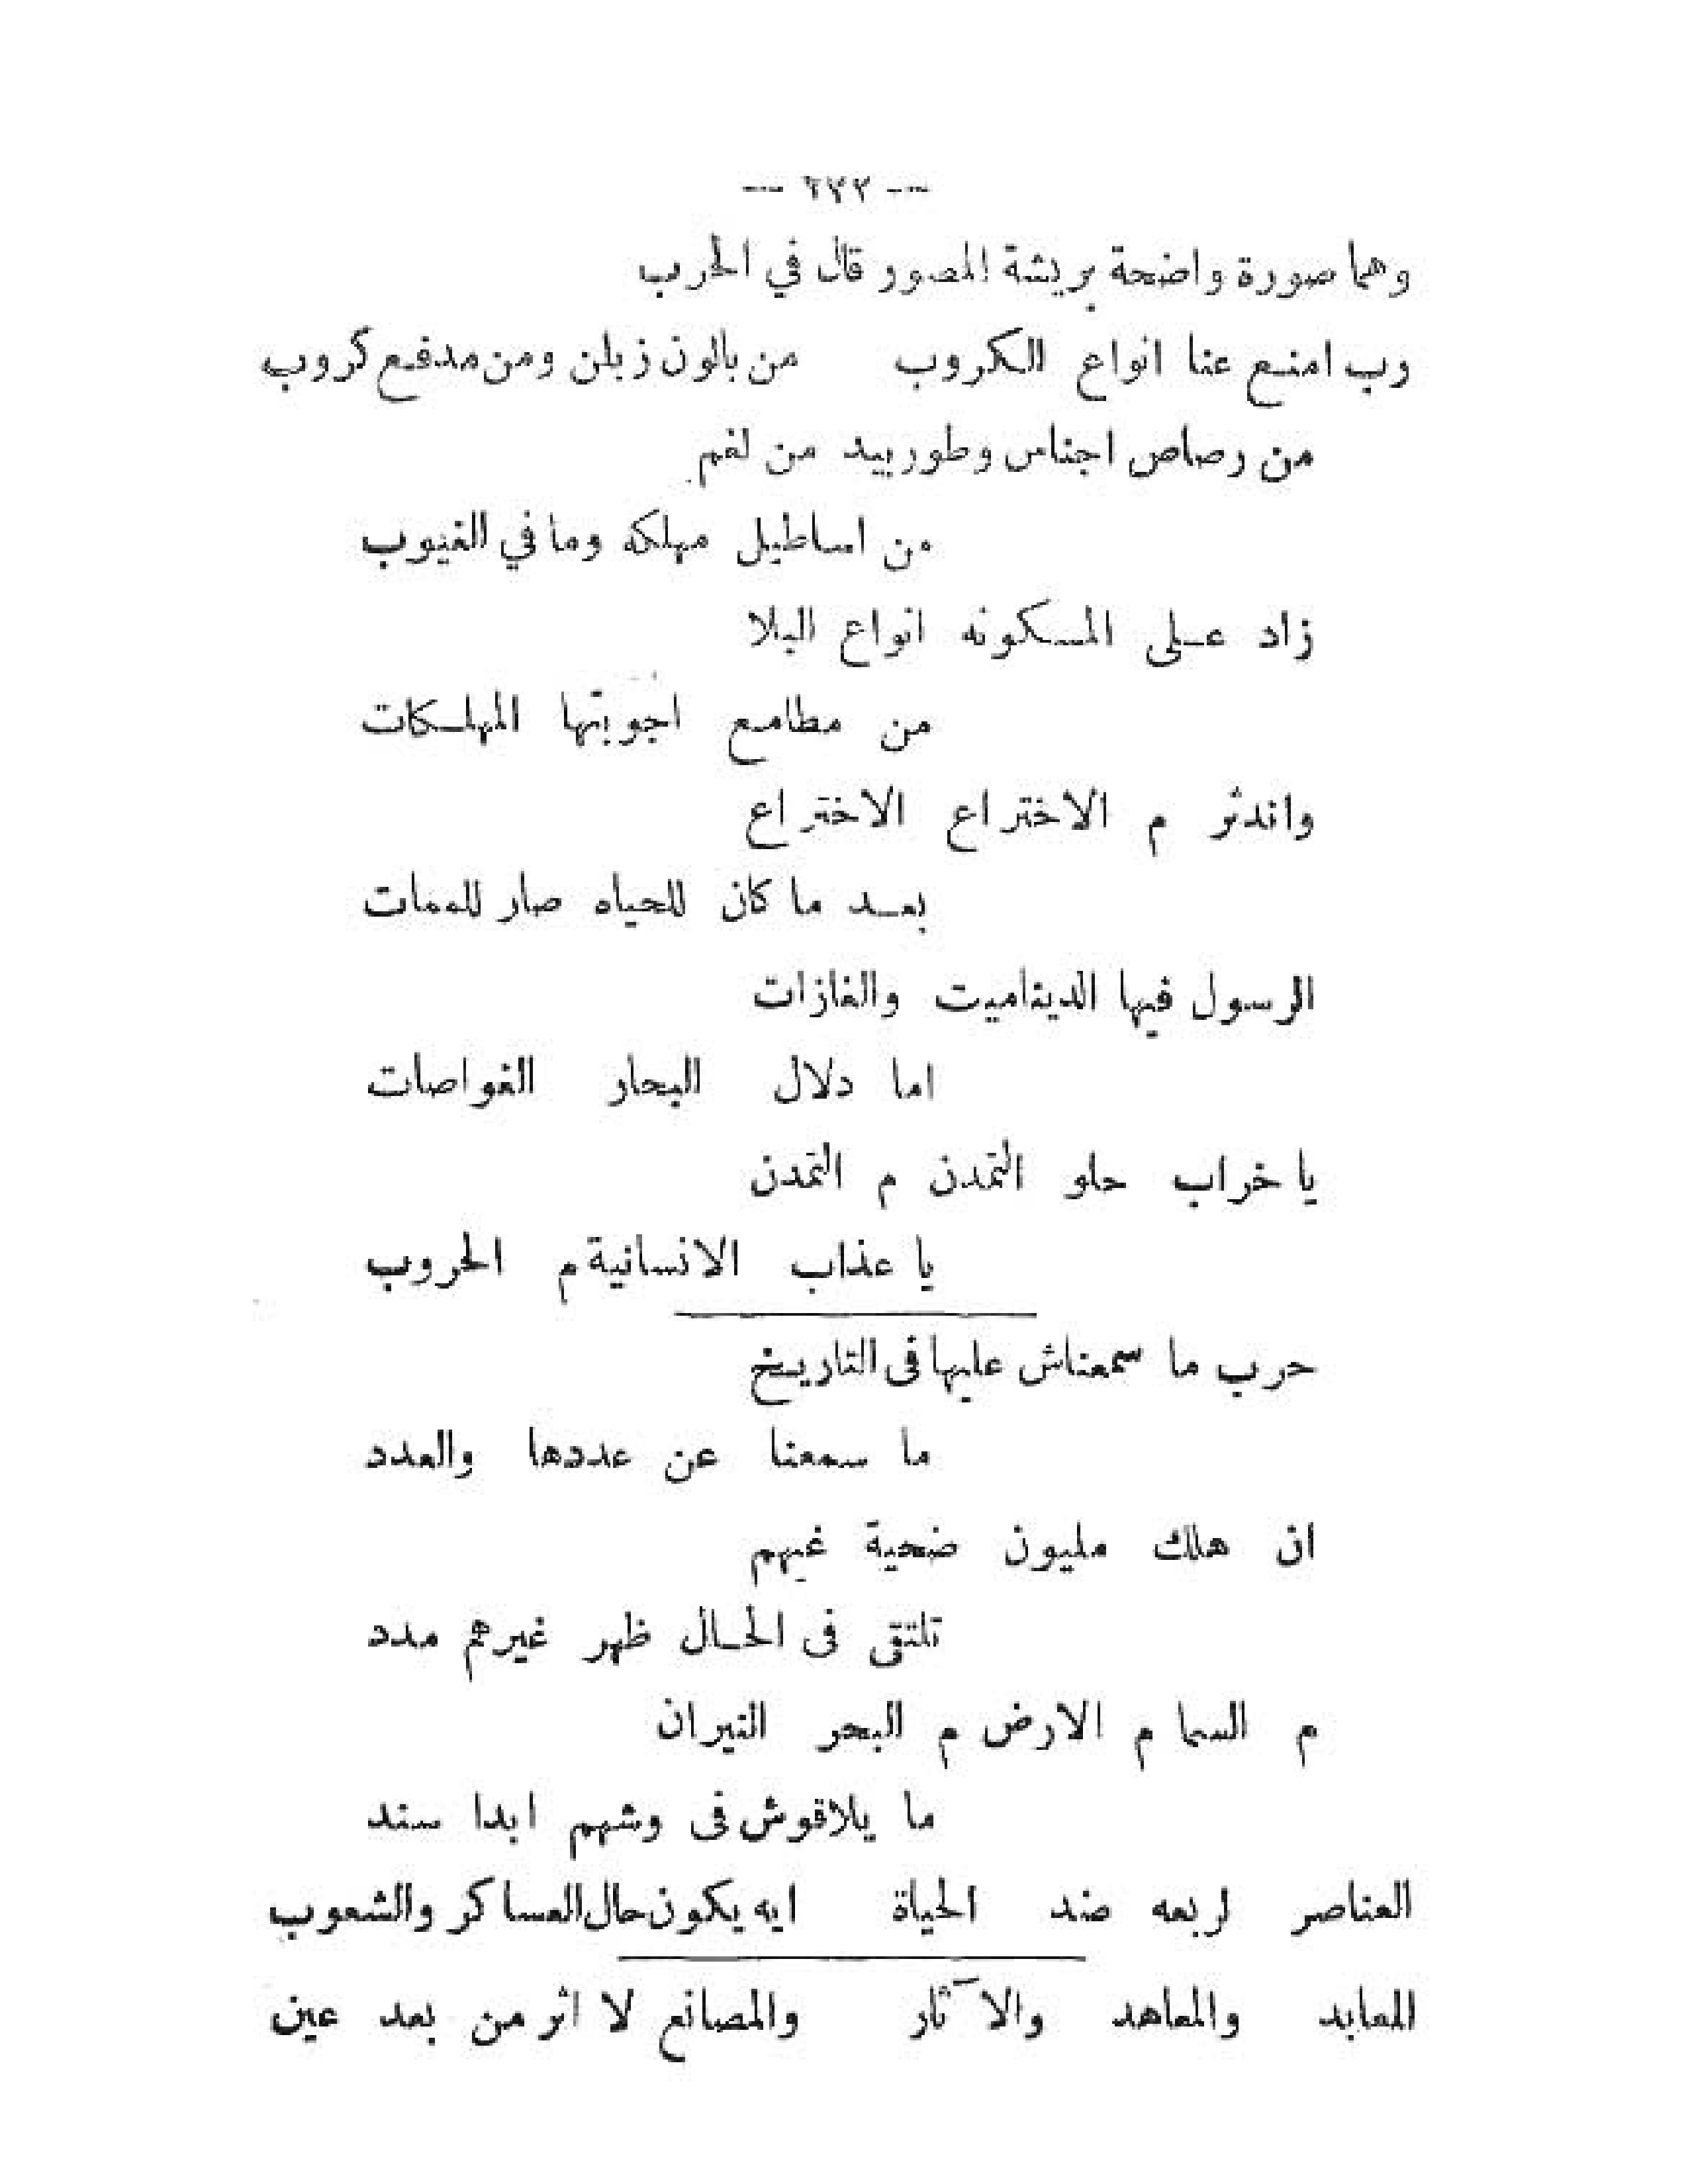 --- ٦٧٢ ---
وهما صورة واضحة بريشة المصور قال في الحرب
رب امنع عنا انواع الكروب من بالون زبلن ومن مدفع كروب
من رصاص اجناس وطوربيد من لغم
من اساطيل مهلكه وما في الغيوب
زاد على المسكونه انواع البلا
من مطامع اجوبتها المهلكات
واندثر م الاختراع الاختراع
بعد ما كان للحياه صار للممات
الرسول فيها الديناميت والغازات
اما دلال البحار الغواصات
يا خراب حلو التمدن م التمدن
يا عذاب الانسانية م الحروب
حرب ما سمعناش عليها فى التاريخ
ما سمعنا عن عددها والعدد
ان هلك مليون ضحية غيهم
تلتقى فى الحال ظهر غيرهم مدد
م السما م الارض م البحر النيران
ما يلاقوش فى وشهم ابدا سند
العناصر لربعه ضد الحياة ايه يكون حال العساكر والشعوب
المعابد والمعاهد والآثار والمصانع لا اثر من بعد عين